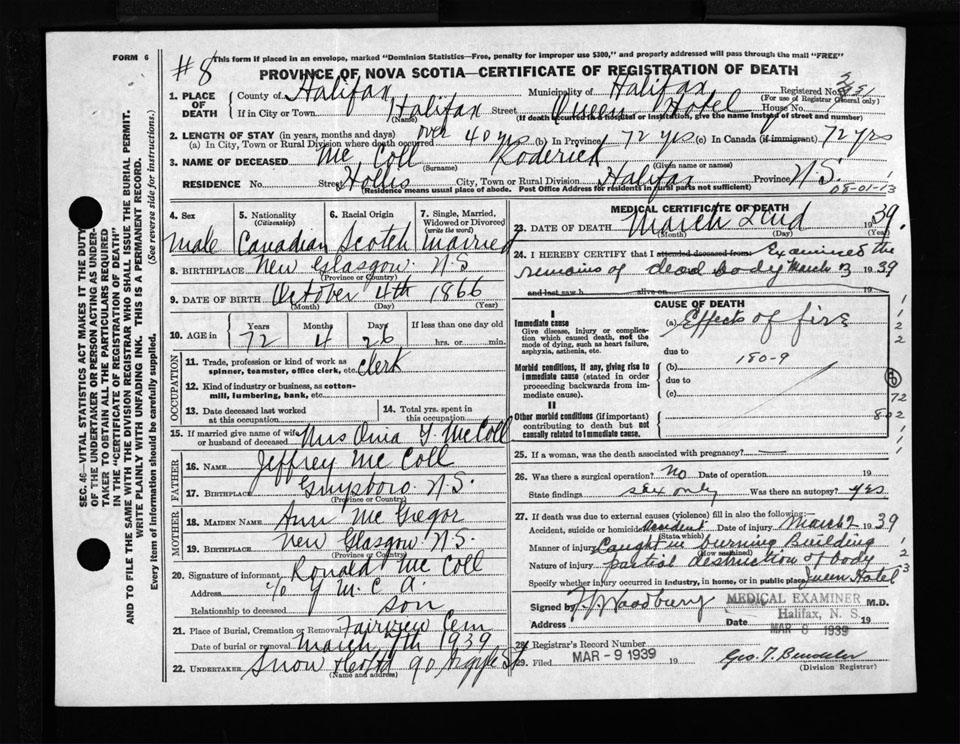 FORM 6
#8
This form if placed in an envelope, marked "Dominion Statistics—Free, penalty for improper use $300," and properly addressed will pass through the mail "FREE"
PROVINCE OF NOVA SCOTIA—CERTIFICATE OF REGISTRATION OF DEATH
1. PLACE OF DEATH
County of Halifax Municipality of Halifax Registered No.
(For use of Registrar General only)
If in City or Town Halifax Street Queen Hotel House No.
(Name) (If death occurred in hospital or institution, give the name instead of street and number)
2. LENGTH OF STAY (in years, months and days)
(a) In City, Town or Rural Division where death occurred over 40 yrs (b) In Province 72 yrs (c) In Canada (if immigrant) 72 yrs
3. NAME OF DECEASED Mc Coll Roderick
(Surname) (Given name or names)
RESIDENCE No. Street Hollis City, Town or Rural Division Halifax Province N.S.
(Residence means usual place of abode. Post Office Address for residents in rural parts not sufficient)
08-01-13
4. Sex
male
5. Nationality (Citizenship)
Canadian
6. Racial Origin
Scotch
7. Single, Married, Widowed or Divorced (write the word)
married
8. BIRTHPLACE New Glasgow. N.S
(Province or Country)
9. DATE OF BIRTH October 4th 1866
(Month) (Day) (Year)
10. AGE in
Years Months Days If less than one day old
72 4 26 hrs. or min.
OCCUPATION
11. Trade, profession or kind of work as spinner, teamster, office clerk, etc. Clerk
12. Kind of industry or business, as cotton-mill, lumbering, bank, etc.
13. Date deceased last worked at this occupation
14. Total yrs. spent in this occupation
15. If married give name of wife or husband of deceased Mrs McColl
FATHER
16. NAME Jeffrey Mc Coll
17. BIRTHPLACE Guysboro. N.S.
(Province or Country)
MOTHER
18. MAIDEN NAME Ann Mc Gregor
19. BIRTHPLACE New Glasgow N.S.
(Province or Country)
20. Signature of informant Ronald Mc Coll
Address % Y.M.C.A.
Relationship to deceased son
21. Place of Burial, Cremation or Removal Fairview Cem
Date of burial or removal March 7th 1939
22. UNDERTAKER Snow & Co Ltd 90 Argyle St
(Name and address)
MEDICAL CERTIFICATE OF DEATH
23. DATE OF DEATH March 2nd 1939
(Month) (Day) (Year)
24. I HEREBY CERTIFY that I attended deceased from Examined the
remains of dead body March 3 1939
and last saw h alive on 19
CAUSE OF DEATH
I
Immediate cause
Give disease, injury or complication which caused death, not the mode of dying, such as heart failure, asphyxia, asthenia, etc.
(a) Effects of fire
due to
180-9
Morbid conditions, if any, giving rise to immediate cause (stated in order proceeding backwards from immediate cause).
(b)
due to
(c)
II
Other morbid conditions (if important) contributing to death but not causally related to immediate cause.
72
802
25. If a woman, was the death associated with pregnancy? —
26. Was there a surgical operation? No Date of operation 19
State findings sex only Was there an autopsy? yes
27. If death was due to external causes (violence) fill in also the following:—
Accident, suicide or homicide Accident Date of injury March 2 1939
(State which)
Manner of injury Caught in burning Building
(How sustained)
Nature of injury partial destruction of body
Specify whether injury occurred in industry, in home, or in public place Queen Hotel
Signed by Woodbury M.D.
MEDICAL EXAMINER
Address Date
Halifax, N. S.
MAR 8 1939
28. Registrar's Record Number
29. Filed MAR - 9 1939 19
(Division Registrar)
SEC. 46—VITAL STATISTICS ACT MAKES IT THE DUTY
OF THE UNDERTAKER OR PERSON ACTING AS UNDER-
TAKER TO OBTAIN ALL THE PARTICULARS REQUIRED
IN THE "CERTIFICATE OF REGISTRATION OF DEATH"
AND TO FILE THE SAME WITH THE DIVISION REGISTRAR WHO SHALL ISSUE THE BURIAL PERMIT.
WRITE PLAINLY WITH UNFADING INK. THIS IS A PERMANENT RECORD.
Every item of information should be carefully supplied. (See reverse side for instructions.)